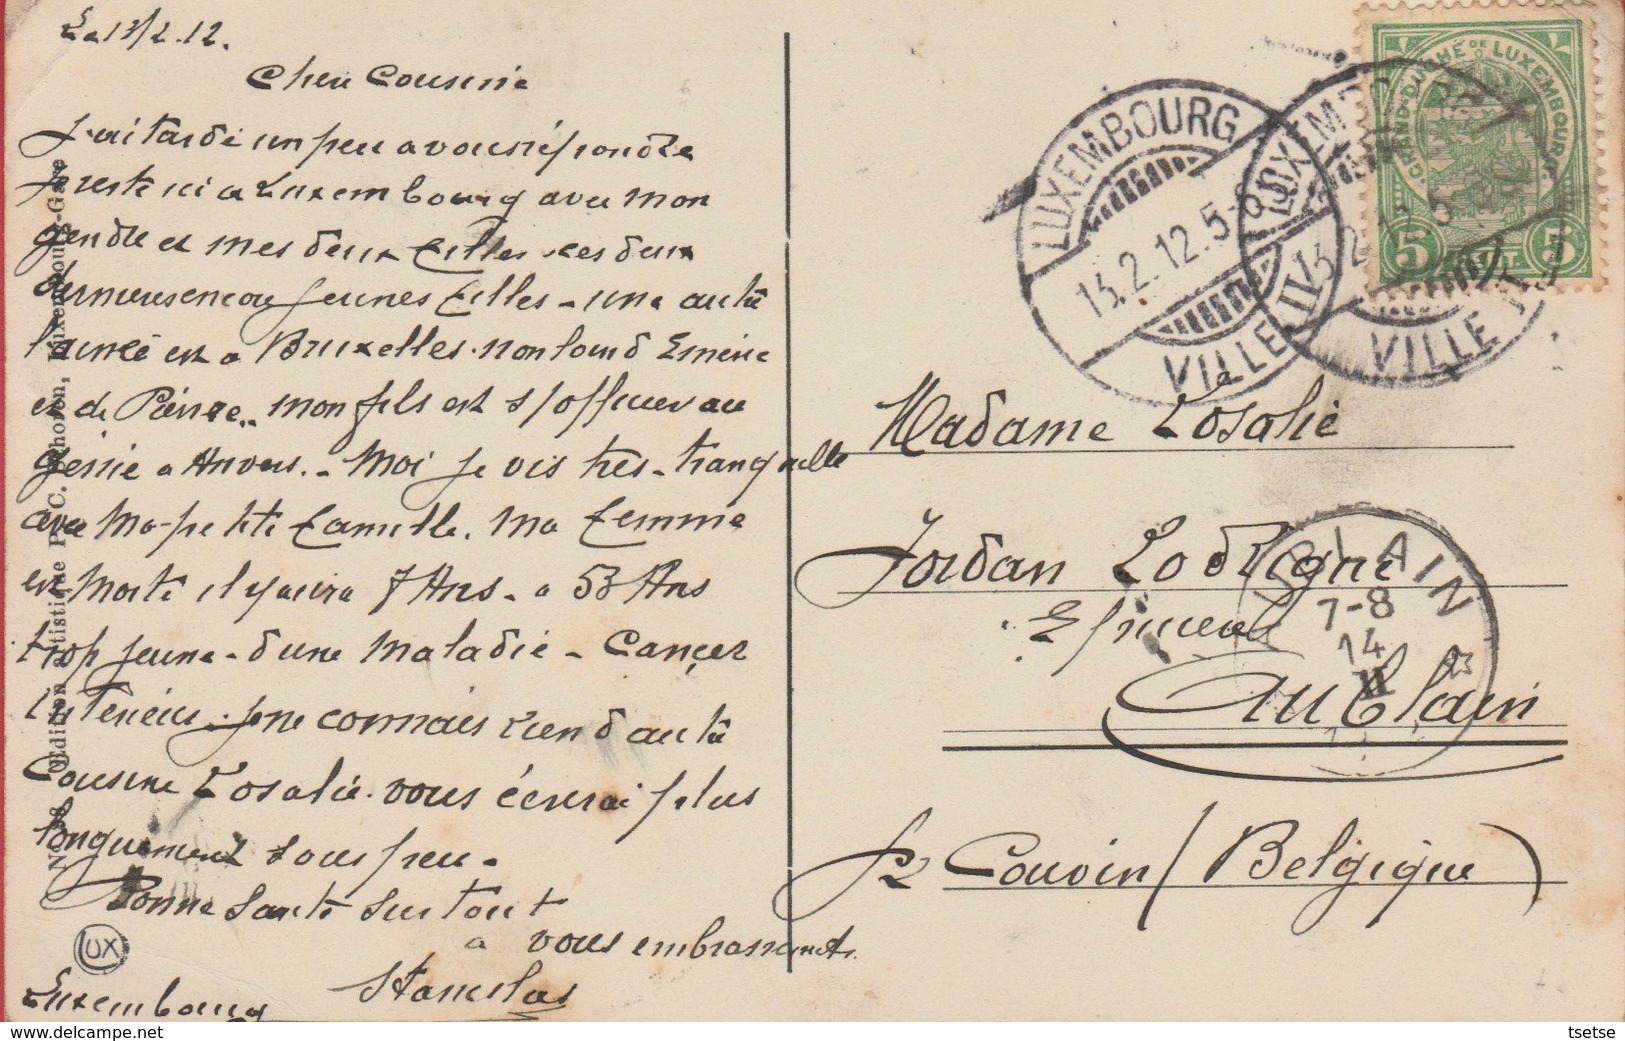 Le 13/2.12.
Cher Cousine
J'ai tardé un peu a vous répondre
je reste ici a Luxembourg avec mon
gendre et mes deux filles. ces deux
dernieres encor jeunes filles - une autre
l'ainée est a Bruxelles. non loin d'
et de Pierre.. mon fils est s/officier au
génie a Anvers. - Moi je vis tres - tranquille
avec Ma petite famille. Ma femme
est Morte il y aura 7 Ans - a 53 Ans
trop jeune - d'une Maladie - Cancer
interieur. je ne connais rien d'autre
Cousine Rosalie. vous écrirai plus
longuement sous peu -
Bonne Santé surtout
a vous embrassant.
Stanislas
Luxembourg
No. 38 Edition artistique P. C. Schoren, Luxembourg-Gare
LUX
GRAND-DUCHÉ DE LUXEMBOURG
5 5
LUXEMBOURG
13.2.12.5-6
VILLE
LUXEMBOURG
VILLE
Madame Rosalie
Jordan Rodrigue
7-8
14
II
Au Blain
pr Couvin / Belgique )
tsetse
delcampe.net